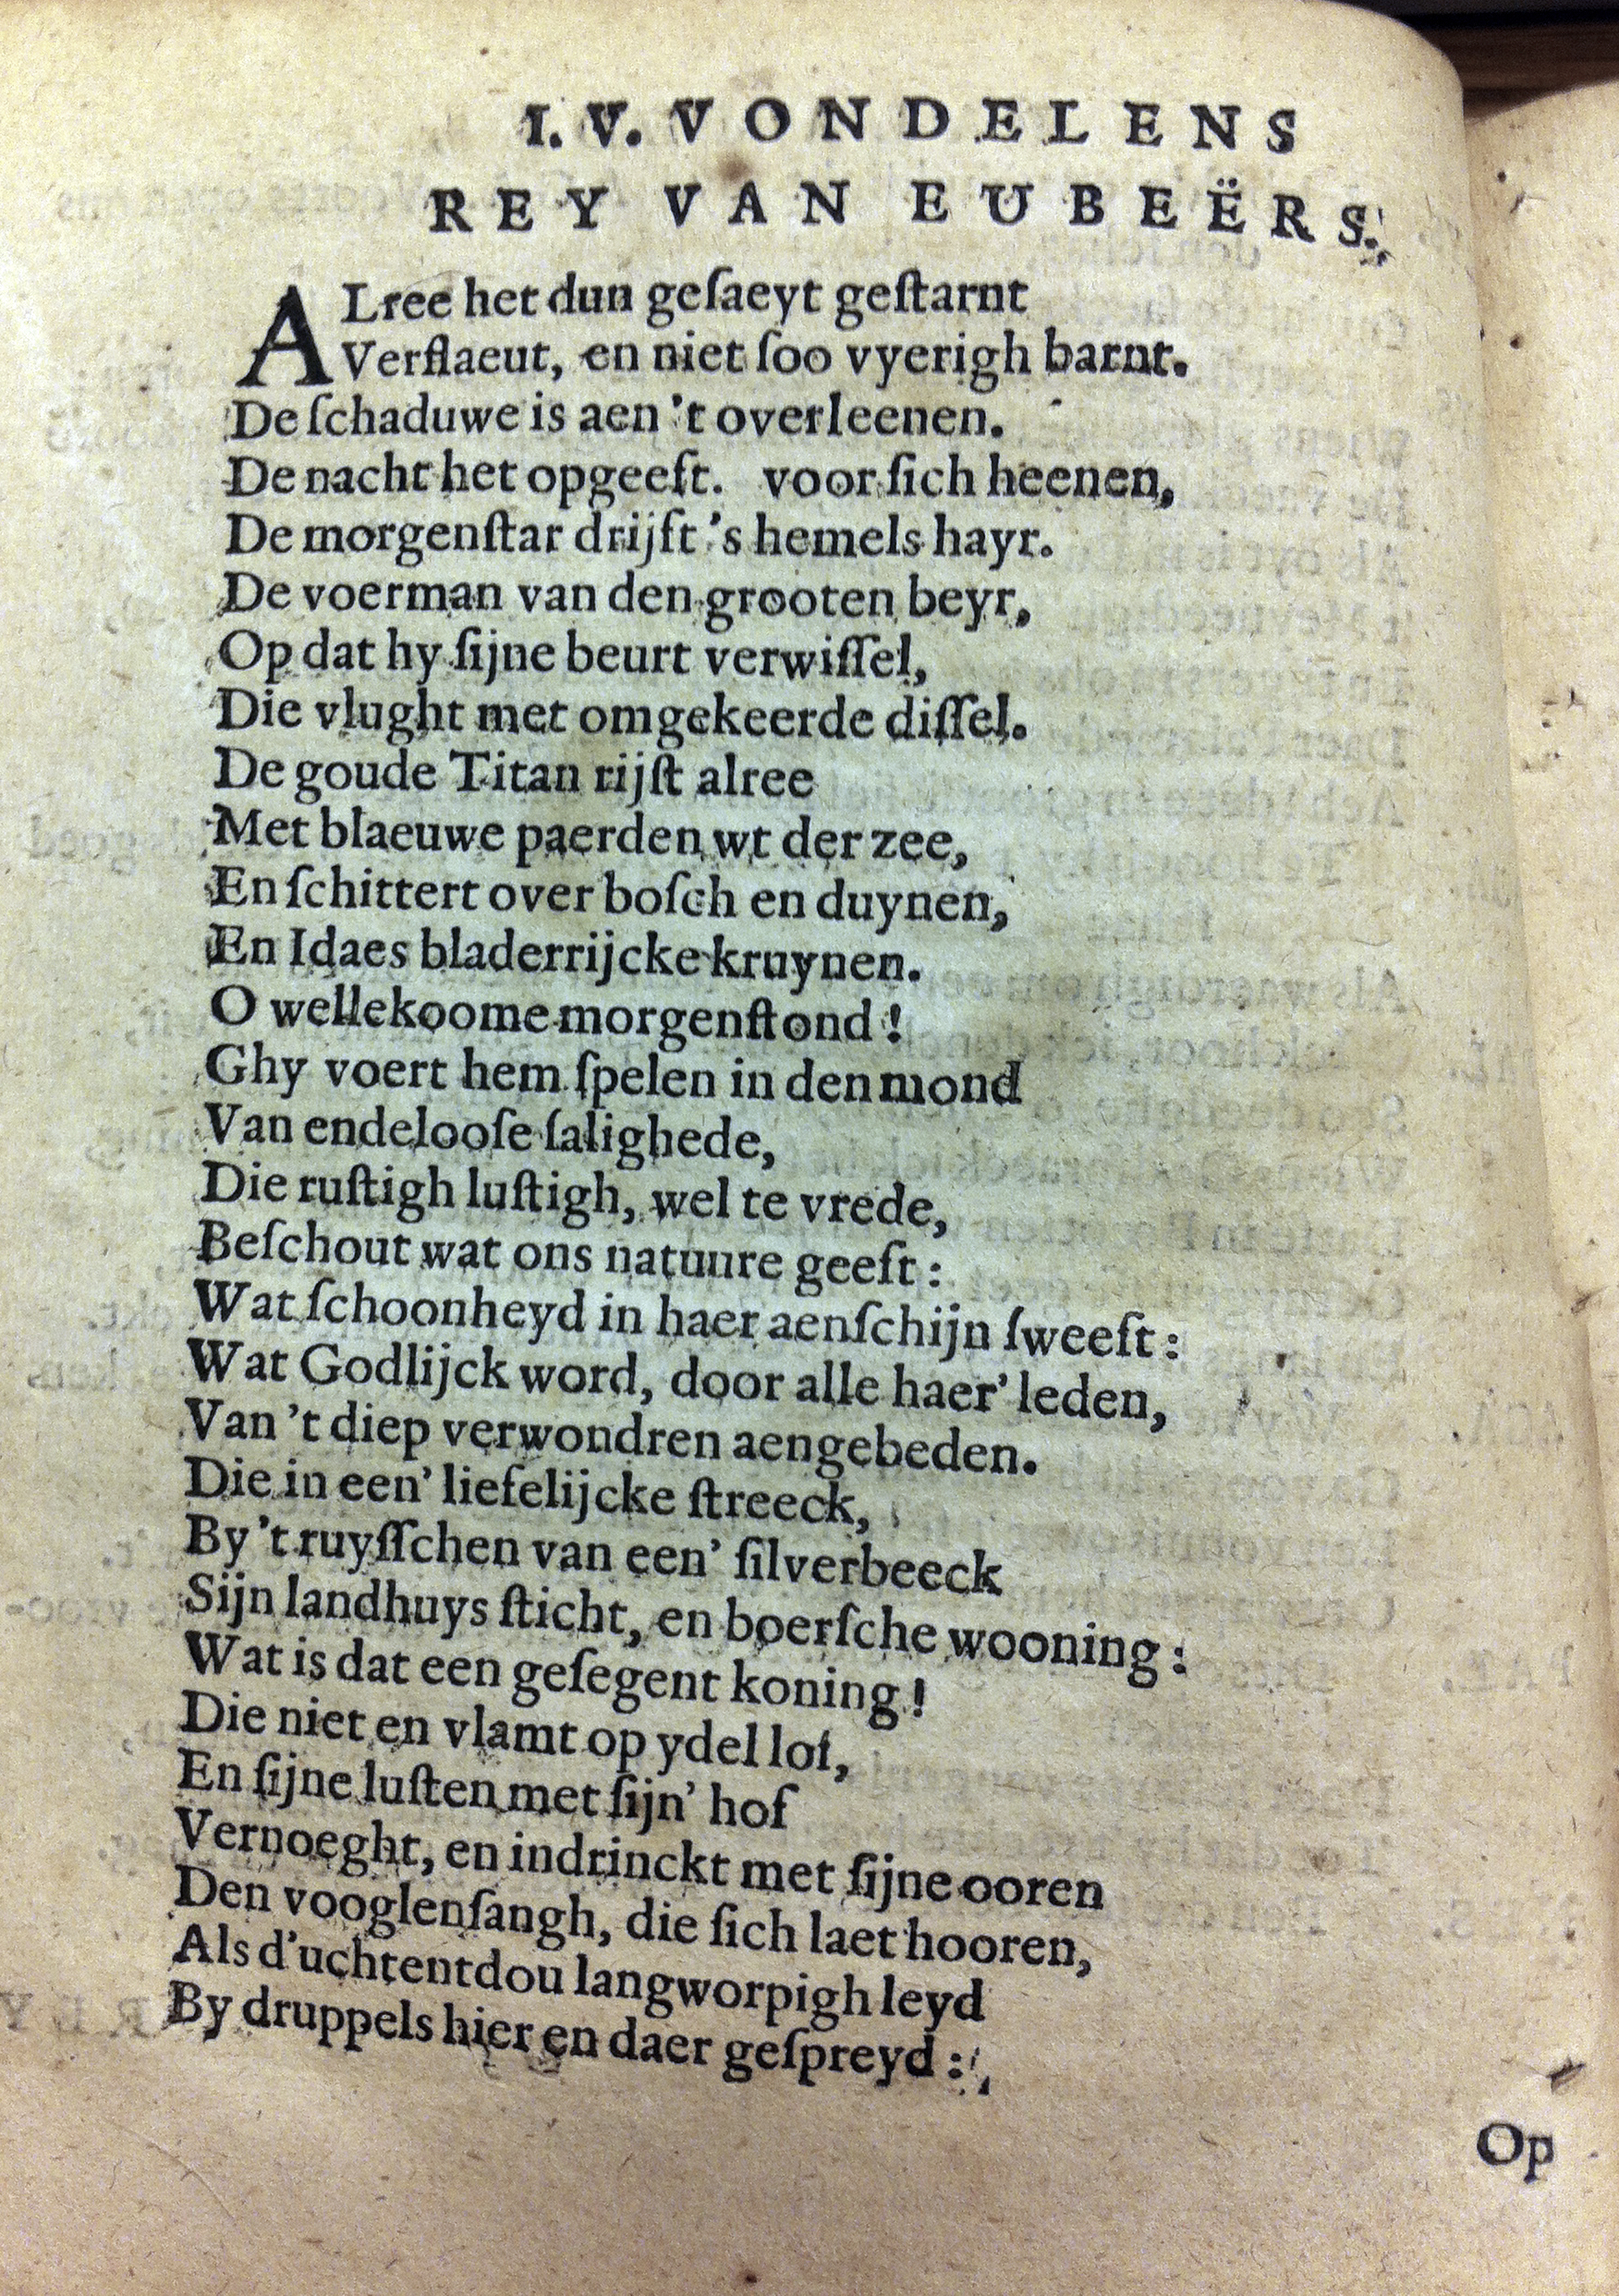 I. V. VONDELENS
REY VAN EUBEËRS.
ALree het dun geſaeyt geſtarnt
Verflaeut, en niet ſoo vyerigh barnt.
De ſchaduwe is aen 't overleenen.
De nacht het opgeeft. voor ſich heenen,
De morgenſtar drijft 's hemels hayr.
De voerman van den grooten beyr,
Op dat hy ſijne beurt verwiſſel,
Die vlught met omgekeerde diſſel.
De goude Titan rijſt alree
Met blaeuwe paerden wt der zee,
En ſchittert over boſch en duynen,
En Idaes bladerrijcke kruynen.
O wellekoome morgenſtond!
Ghy voert hem ſpelen in den mond
Van endelooſe ſalighede,
Die ruſtigh luſtigh, wel te vrede,
Beſchout wat ons natuure geeft:
Wat ſchoonheyd in haer aenſchijn ſweeft:
Wat Godlijck word, door alle haer' leden,
Van 't diep verwondren aengebeden.
Die in een' liefelijcke ſtreeck,
By 't ruyſſchen van een' ſilverbeeck
Sijn landhuys ſticht, en boerſche wooning:
Wat is dat een geſegent koning!
Die niet en vlamt op ydel lof,
En ſijne luſten met ſijn' hof
Vernoeght, en indrinckt met ſijne ooren
Den vooglenſangh, die ſich laet hooren,
Als d'uchtentdou langworpigh leyd
By druppels hier en daer geſpreyd:
Op